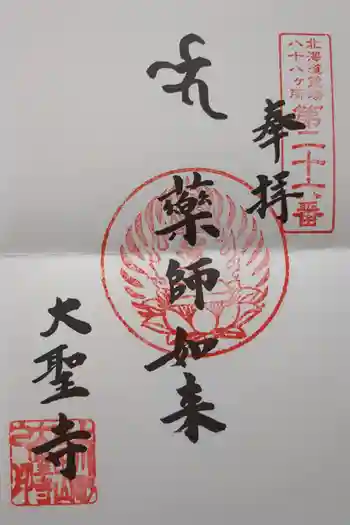 北海道霊場
八十八ヶ所
第二十六番
奉拝
薬師如来
大聖寺